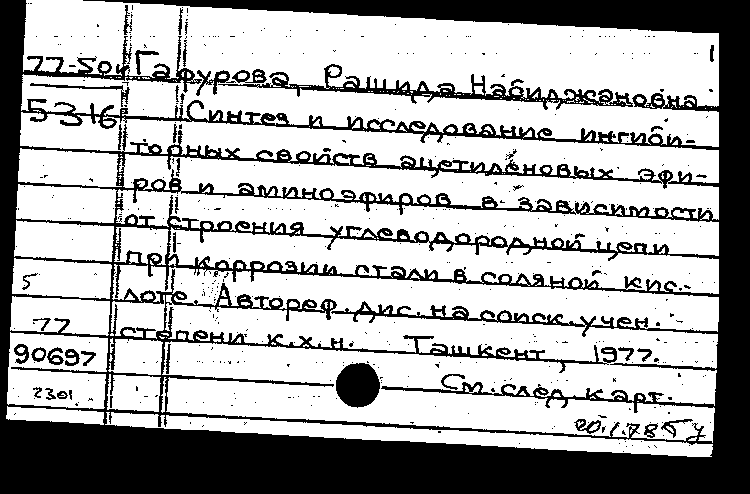 1
77-50к Гафурова, Рашида Набиджановна
5316 Синтез и исследование ингиби-
торных свойств ацетиленовых эфи-
ров и аминоэфиров в зависимости
от строения углеводородной цепи
при коррозии стали в соляной кис-
5 лоте. Автореф. дис. на соиск. учен.
77 степени к.х.н. Ташкент, 1977.
90697
См. след. карт.
2301
20.1.78